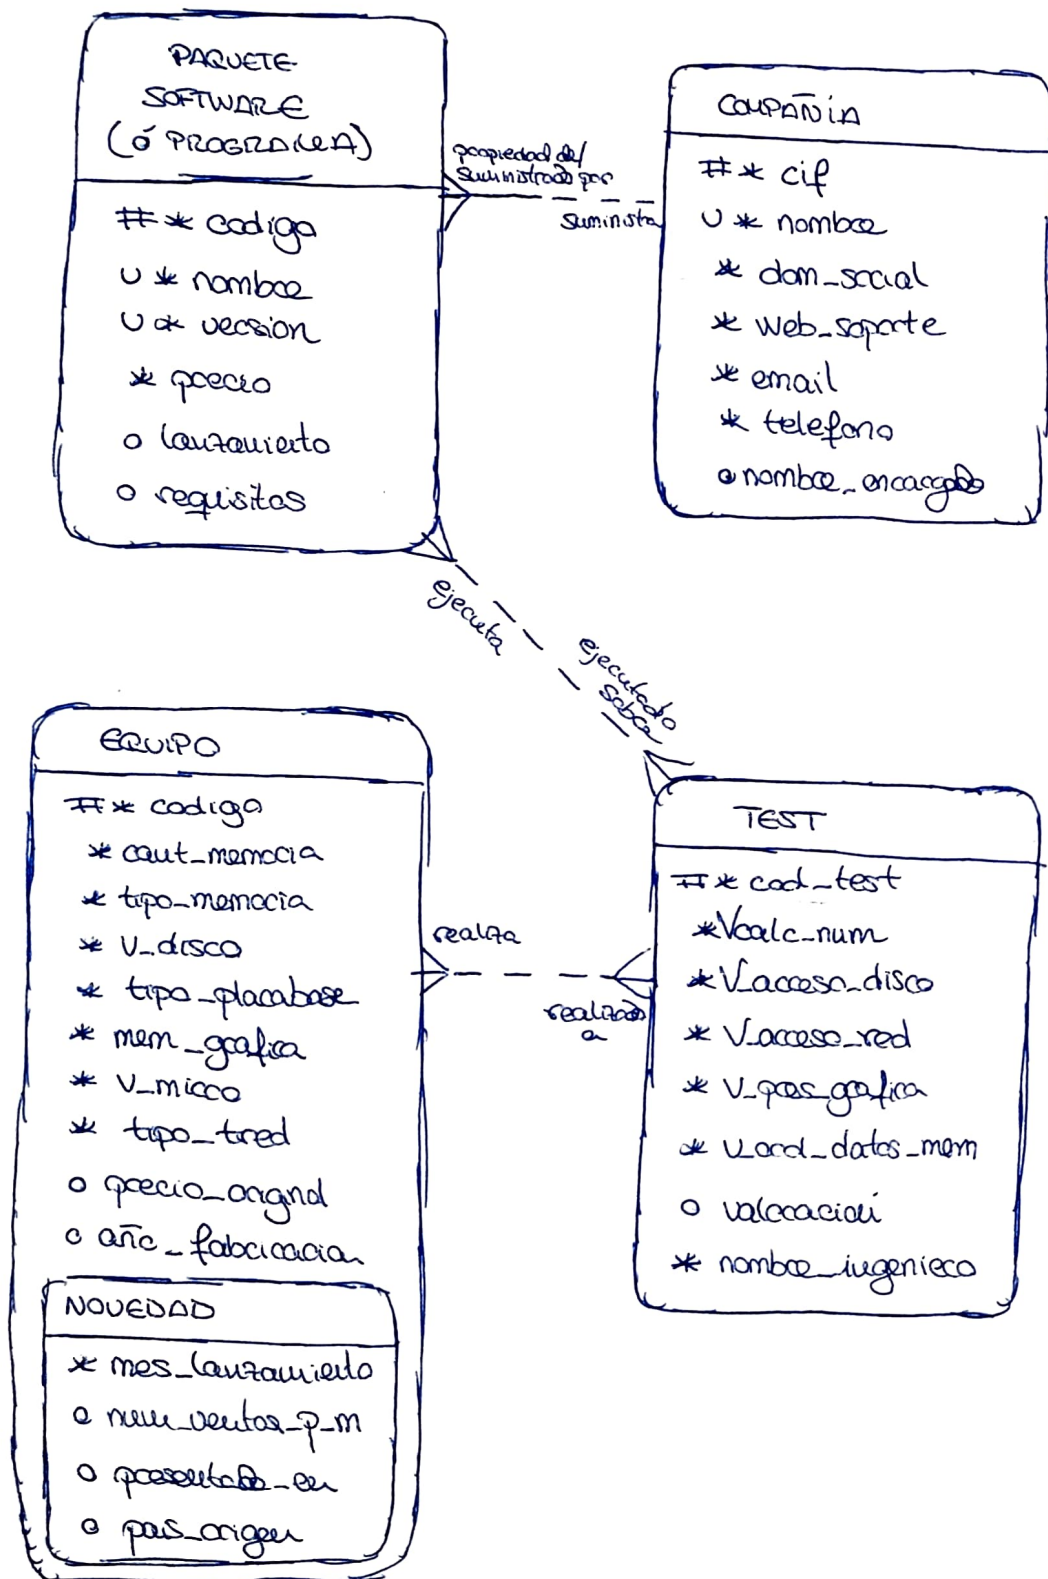 PAQUETE
SOFTWARE
(ó PROGRAMA)
# * codigo
U * nombre
U * version
* precio
o lanzamiento
o requisitos
propiedad de/
suministrado por
suministra
COMPAÑÍA
# * cif
U * nombre
* dom_social
* web_soporte
* email
* telefono
o nombre_encargado
ejecuta
ejecutado
sobre
EQUIPO
# * codigo
* cant_memoria
* tipo_memoria
* v_disco
* tipo_placabase
* mem_grafica
* v_micro
* tipo_tred
o precio_original
o año_fabricacion
NOVEDAD
* mes_lanzamiento
o num_ventas_p_m
o presentado_en
o pais_origen
realiza
realizado
a
TEST
# * cod_test
* Vcalc_num
* V_acceso_disco
* V_acceso_red
* V_pros_grafica
* V_ord_datos_mem
o valoración
* nombre_ingeniero